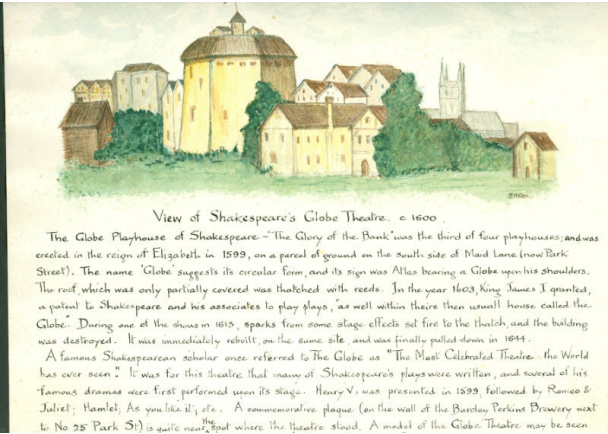 View of Shakespeare's Globe Theatre. c 1600.
The Globe Playhouse of Shakespeare - "The Glory of the Bank" was the third of four playhouses; and was
erected in the reign of Elizabeth in 1599, on a parcel of ground on the south side of Maid Lane (now Park
Street). The name 'Globe' suggests its circular form, and its sign was Atlas bearing a Globe upon his shoulders.
The roof, which was only partially covered was thatched with reeds. In the year 1603, King James I granted,
a patent to Shakespeare and his associates to play plays, "as well within theire then usuall house called the
Globe." During one of the shows in 1613, sparks from some stage effects set fire to the thatch, and the building
was destroyed. It was immediately rebuilt, on the same site, and was finally pulled down in 1644.
A famous Shakespearean scholar once referred to The Globe as "The Most Celebrated Theatre the World
has ever seen." It was for this theatre that many of Shakespeare's plays were written, and several of his
famous dramas were first performed upon its stage. Henry V. was presented in 1599, followed by Romeo &
Juliet; Hamlet; As you like it; etc. A commemorative plaque (on the wall of the Barclay Perkins Brewery next
to No 25 Park St) is quite near the spot where the theatre stood. A model of the Globe Theatre may be seen